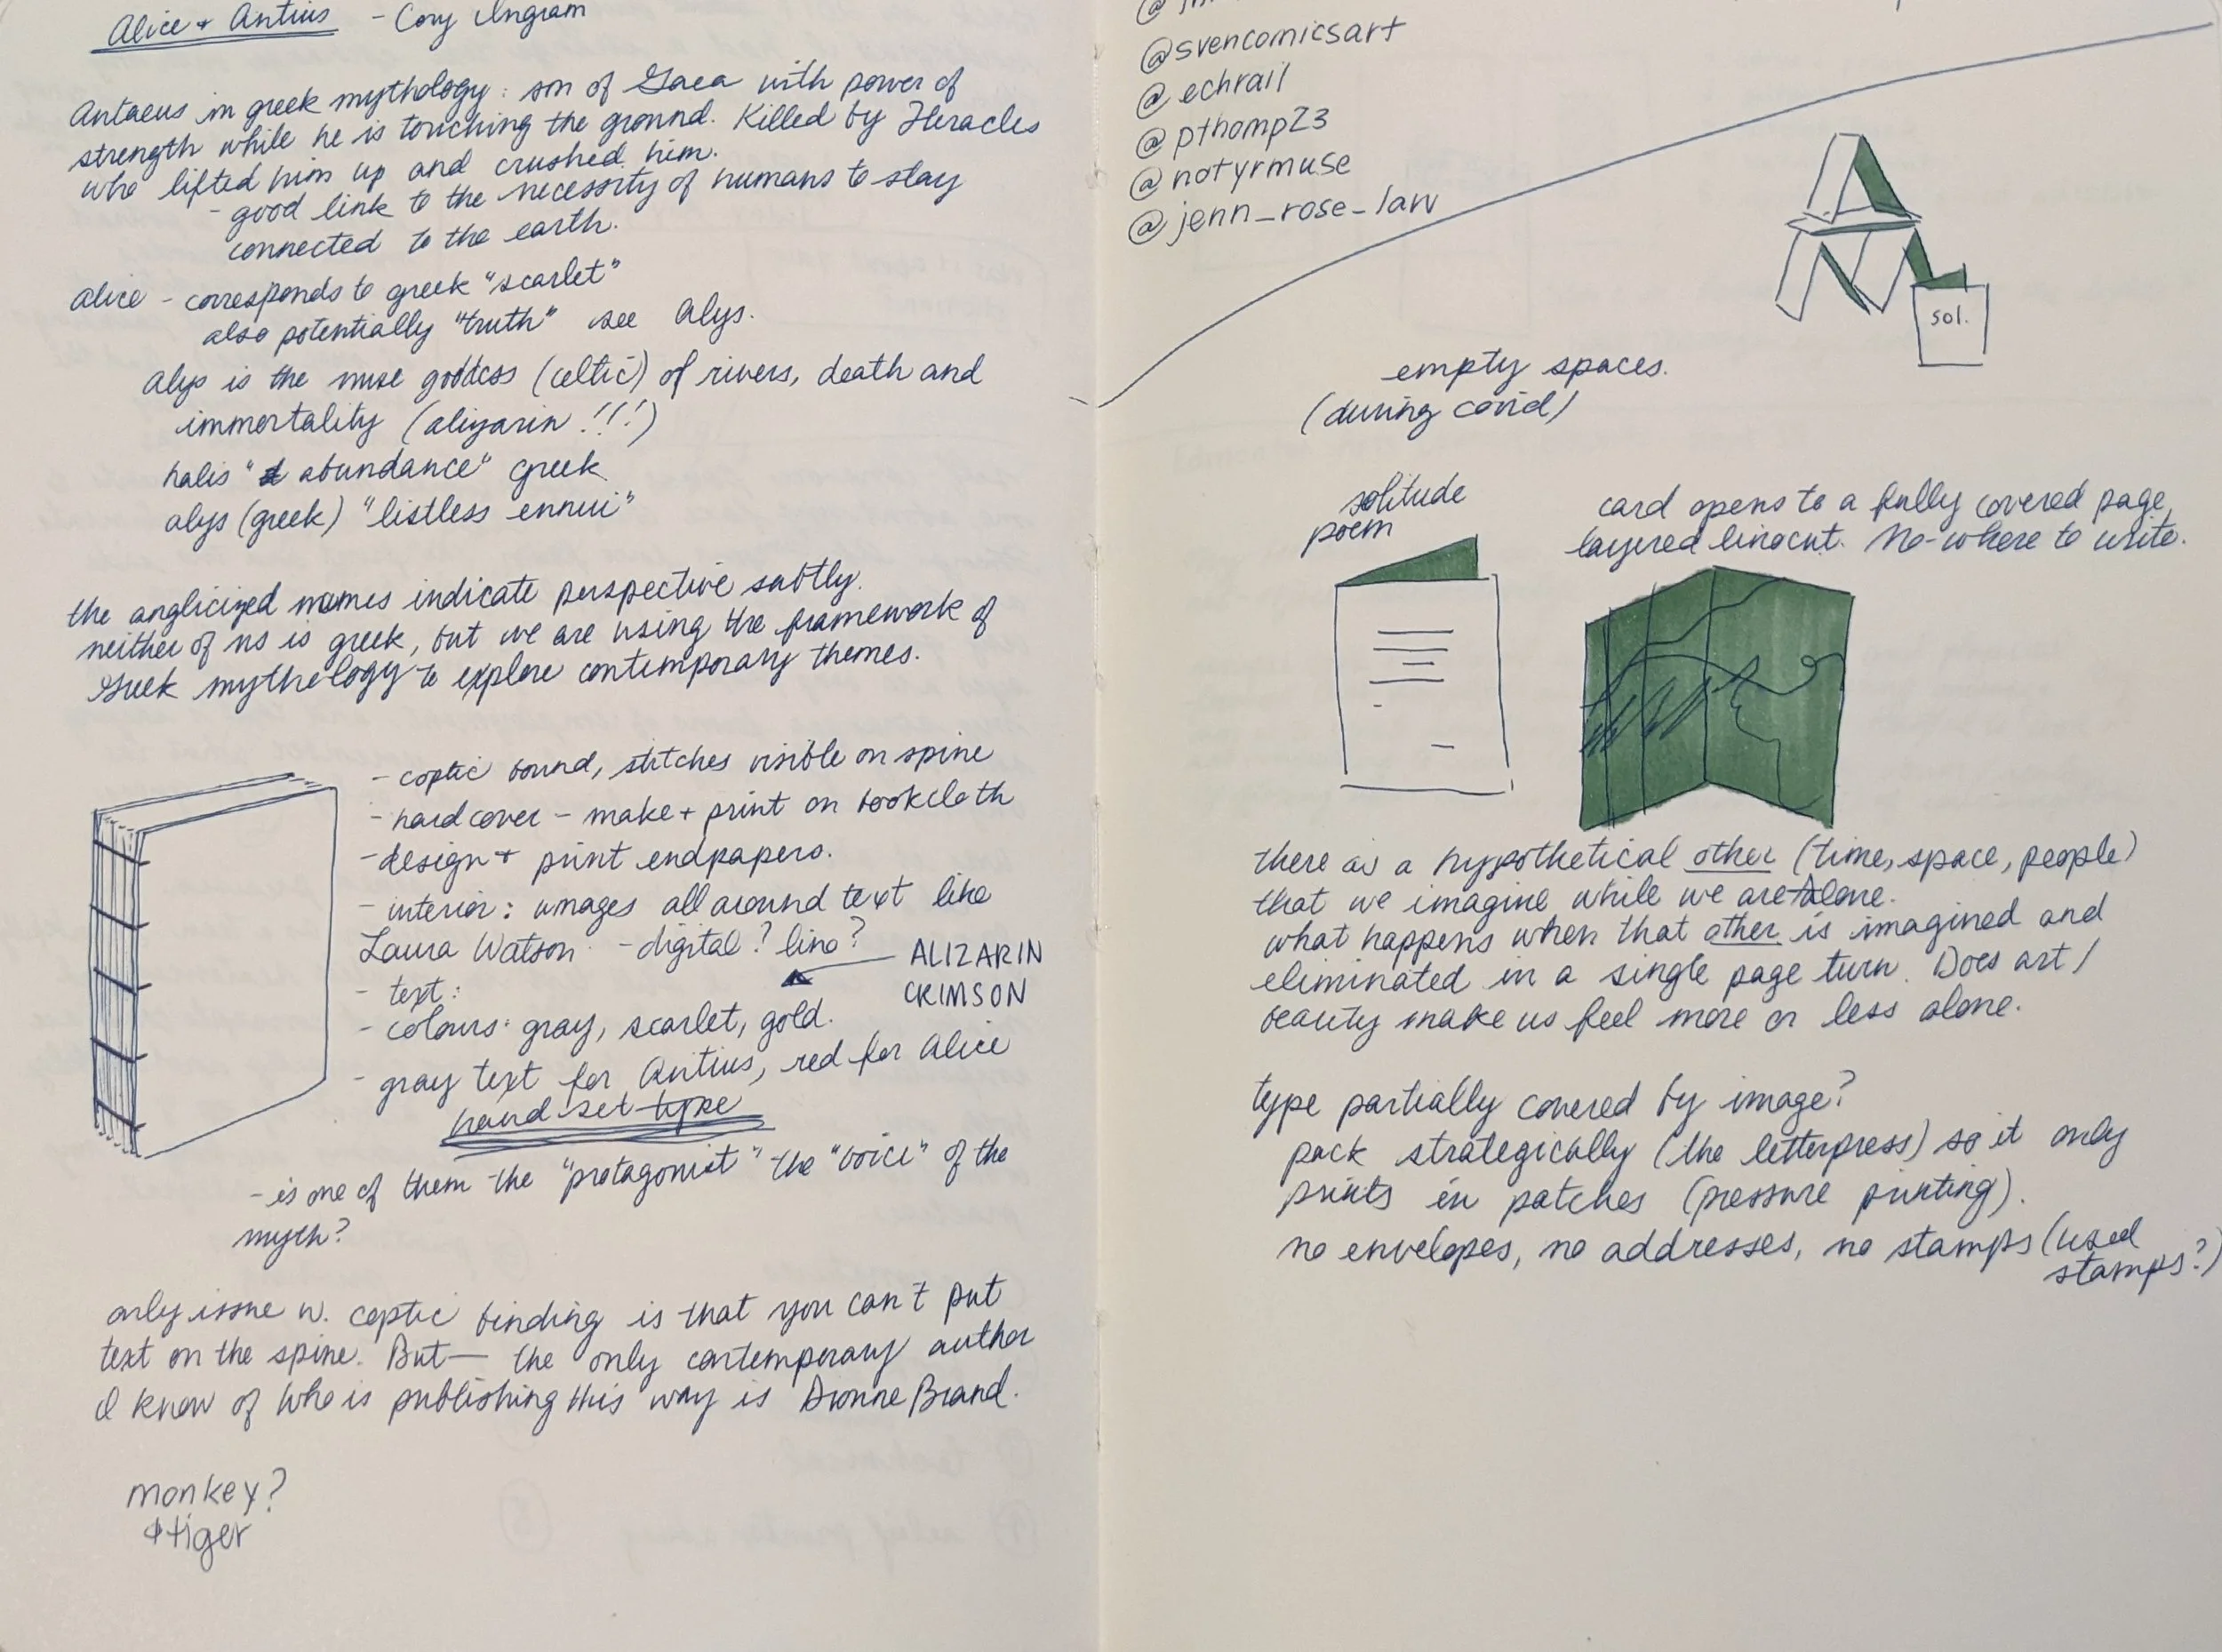 Alice + Antius - Cory Ingram
Antaeus in greek mythology: son of Gaea with power of
strength while he is touching the ground. Killed by Heracles
who lifted him up and crushed him.
- good link to the necessity of humans to stay
connected to the earth.
Alice - corresponds to greek "scarlet"
also potentially "truth" see Alys.
Alys is the muse goddess (celtic) of rivers, death and
immortality (alizarin !!!)
halis "abundance" Greek
alys (greek) "listless ennui"
the anglicized names indicate perspective subtly.
neither of us is greek, but we are using the framework of
Greek mythology to explore contemporary themes.
- coptic bound, stitches visible on spine
- hard cover - make + print on bookcloth
- design + print endpapers.
- interior: images all around text like
Laura Watson - digital? lino?
ALIZARIN
CRIMSON
- text:
- colours: gray, scarlet, gold.
- gray text for Antius, red for Alice
hand set type
- is one of them the "protagonist" the "voice" of the
myth?
only issue w. coptic binding is that you can't put
text on the spine. But— the only contemporary author
I know of who is publishing this way is Dionne Brand.
monkey?
& tiger
@svencomicsart
@echrail
@pthomp23
@notyrmuse
@jenn_rose_law
sol.
empty spaces.
(during covid)
solitude
poem
card opens to a fully covered page,
layered linocut. No-where to write.
there is a hypothetical other (time, space, people)
that we imagine while we are alone.
what happens when that other is imagined and
eliminated in a single page turn. Does art/
beauty make us feel more or less alone.
type partially covered by image?
pack strategically (the letterpress) so it only
prints in patches (pressure printing).
no envelopes, no addresses, no stamps (used
stamps?)